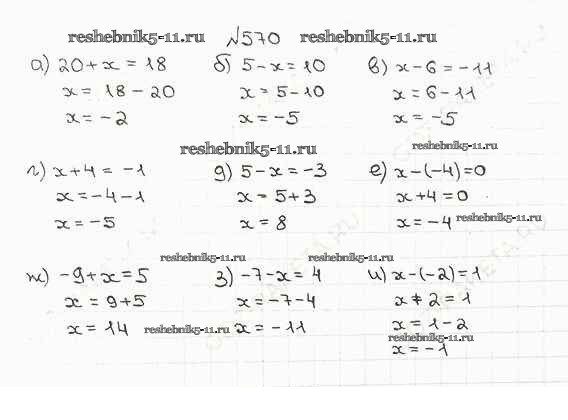 reshebnik5-11.ru №570 reshebnik5-11.ru
а) 20+x=18 б) 5-x=10 в) x-6=-11
x= 18-20 x=5-10 x=6-11
x=-2 x=-5 x=-5
reshebnik5-11.ru reshebnik5-11.ru
г) x+4=-1 д) 5-x=-3 е) x-(-4)=0
x=-4-1 x=5+3 x+4=0
x=-5 x=8 x=-4 reshebnik5-11.ru
reshebnik5-11.ru reshebnik5-11.ru
ж) -9+x=5 з) -7-x=4 и) x-(-2)=1
x=9+5 x=-7-4 x+2=1
x=14 reshebnik5-11.ru x=-11 x=1-2
reshebnik5-11.ru
x=-1